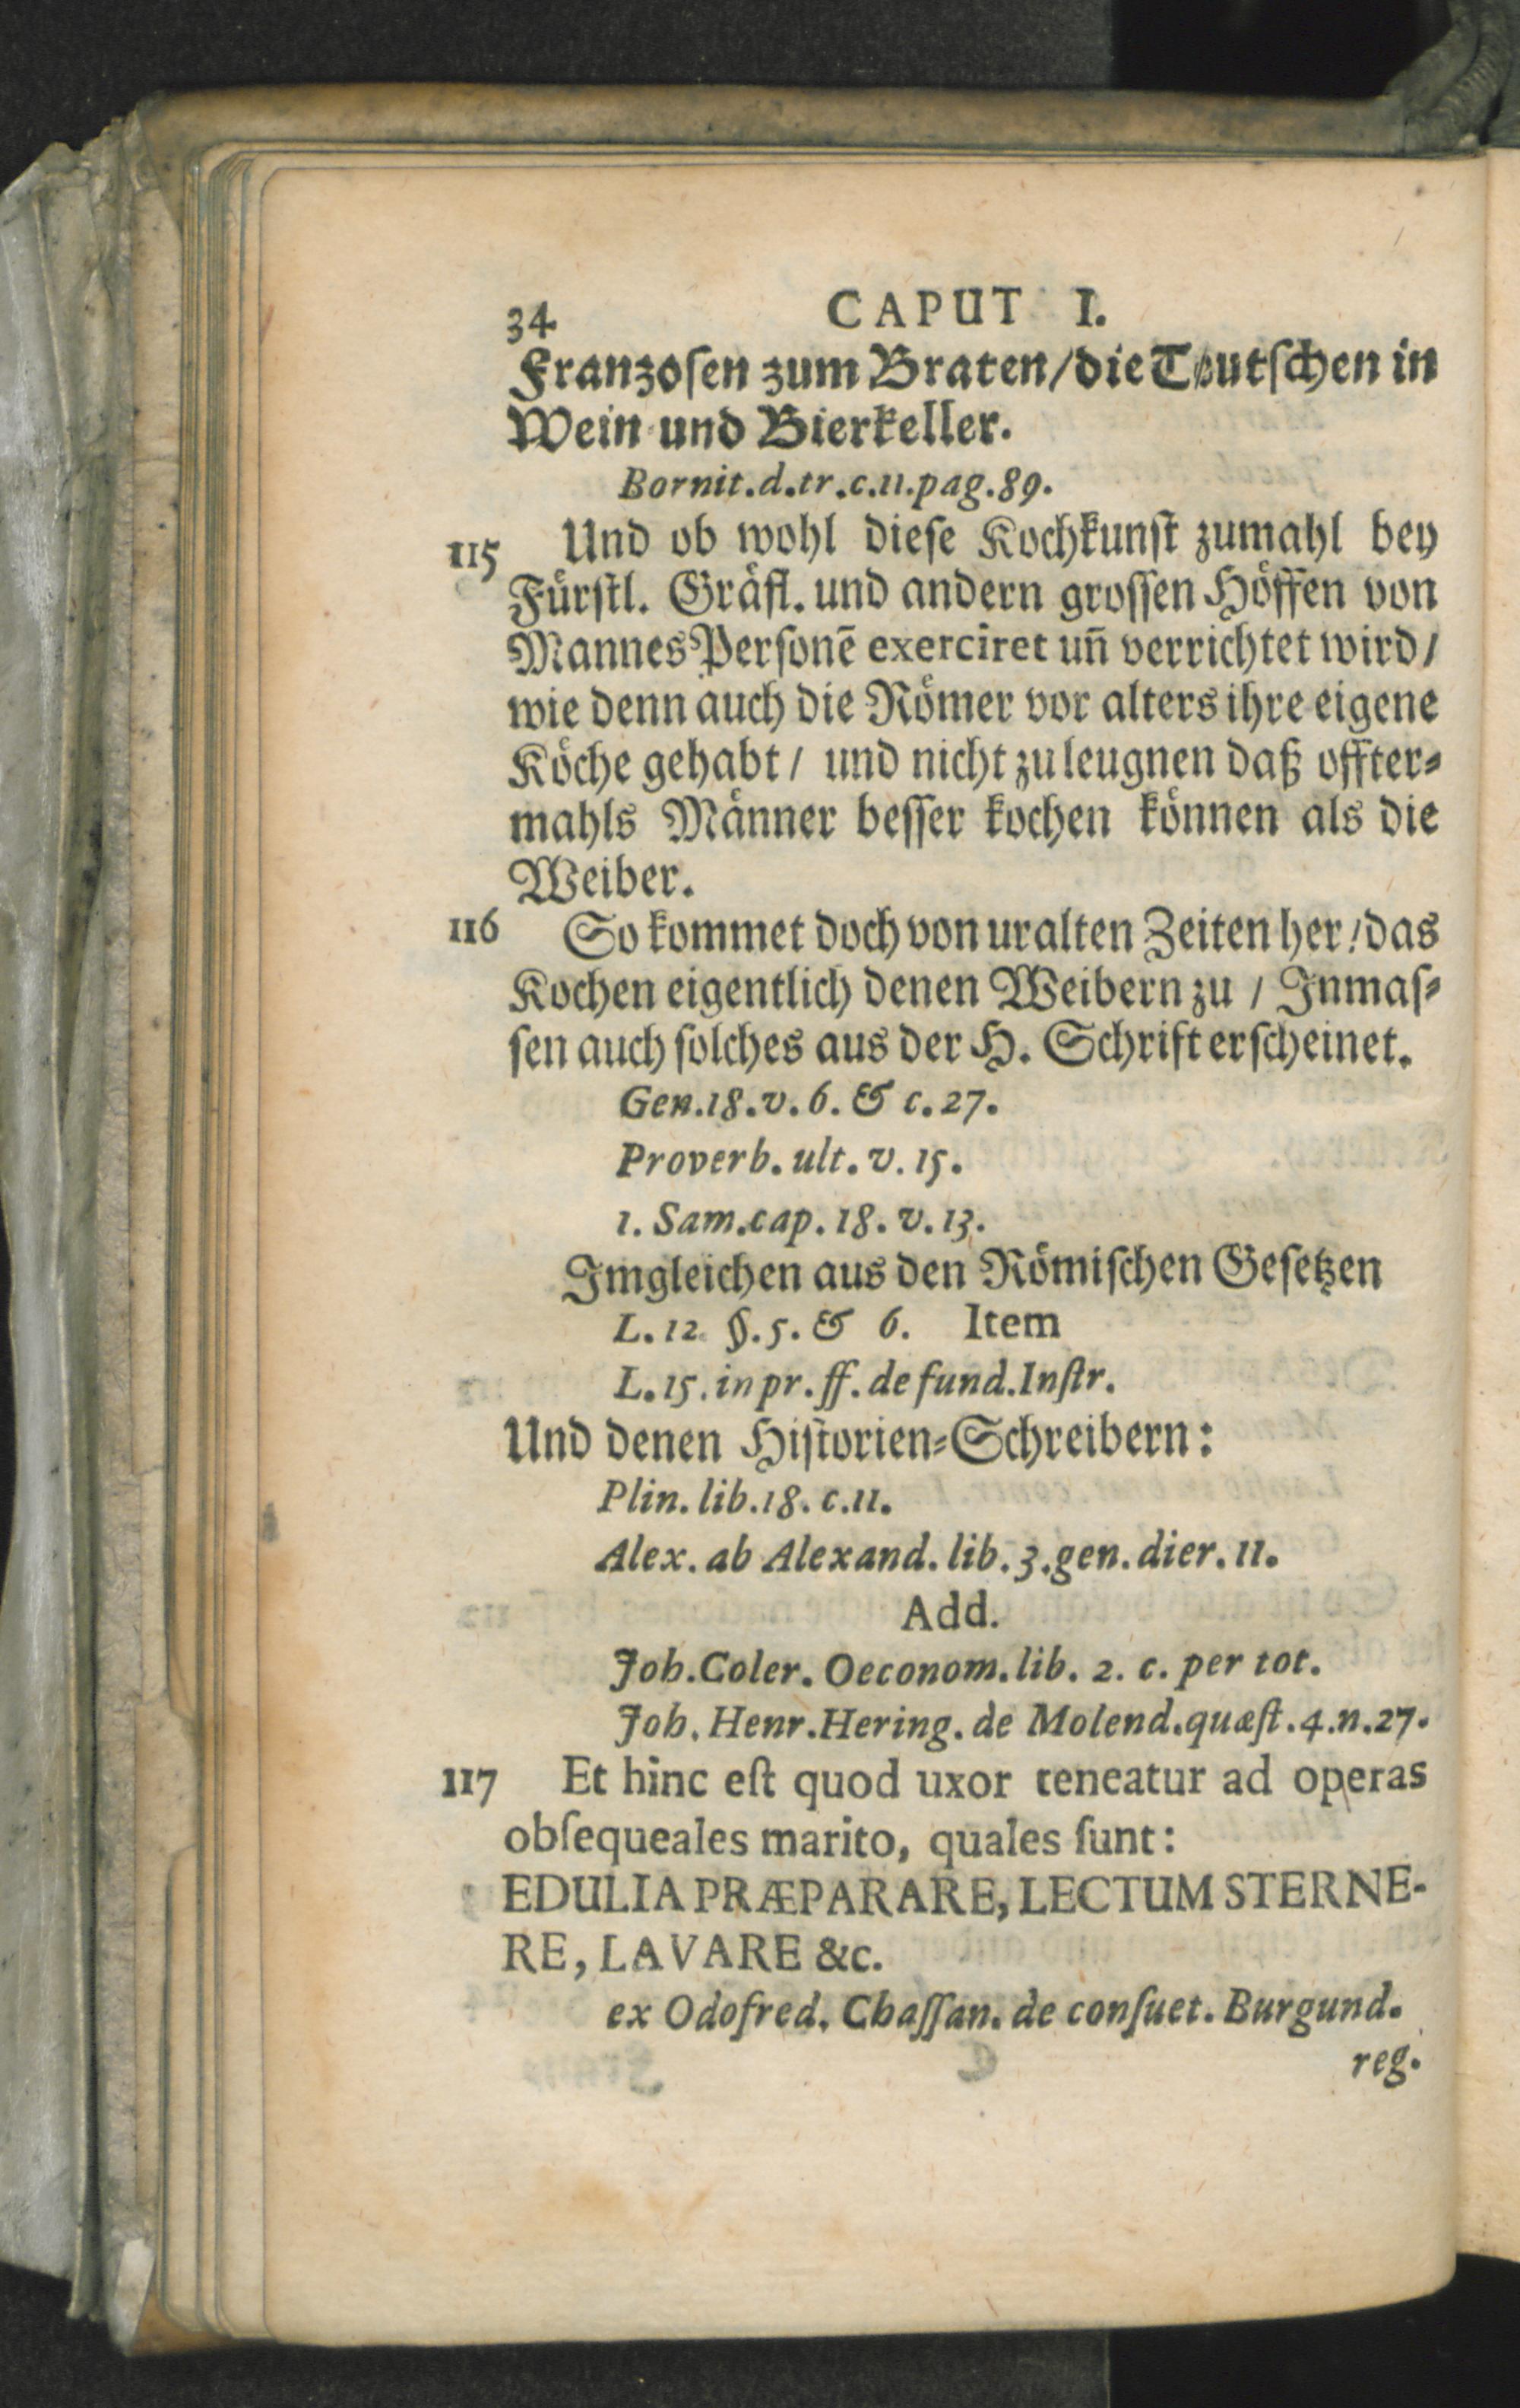 34 CAPUT I.
Franzoſen zum Braten/die Teutſchen in
Wein und Bierkeller.
Bornit.d.tr.c.11.pag.89.
115 Und ob wohl dieſe Kochkunſt zumahl bey
Fürſtl. Gräfl. und andern groſſen Höffen von
MannesPerſonē exerciret uñ verrichtet wird/
wie denn auch die Römer vor alters ihre eigene
Köche gehabt / und nicht zu leugnen daß offter⸗
mahls Männer beſſer kochen können als die
Weiber.
116 So kommet doch von uralten Zeiten her/das
Kochen eigentlich denen Weibern zu / Inmaſ⸗
ſen auch ſolches aus der H. Schrift erſcheinet.
Gen.18.v.6. & c.27.
Proverb. ult. v. 15.
1. Sam.cap. 18. v. 13.
Imgleichen aus den Römiſchen Geſetzen
L. 12. §. 5. & 6. Item
L. 15. in pr. ff. de fund. Inſtr.
Und denen Hiſtorien⸗Schreibern:
Plin. lib. 18. c. 11.
Alex. ab Alexand. lib. 3. gen. dier. 11.
Add.
Joh. Coler. Oeconom. lib. 2. c. per tot.
Joh. Henr. Hering. de Molend. quæſt. 4. n. 27.
117 Et hinc eſt quod uxor teneatur ad operas
obſequeales marito, quales ſunt:
EDULIA PRÆPARARE, LECTUM STERNE-
RE, LAVARE &c.
ex Odofred. Chaſſan. de conſuet. Burgund.
reg.